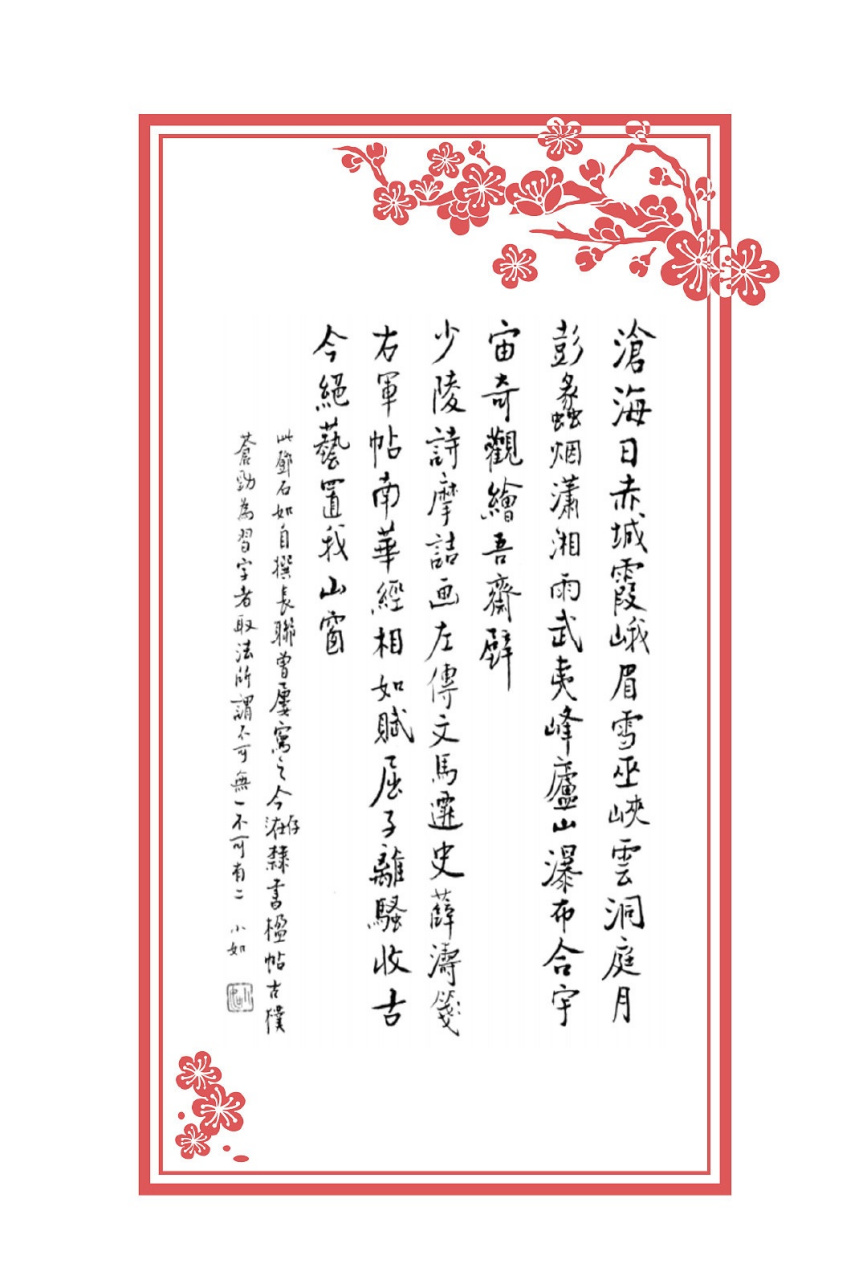 滄海日赤城霞峨眉雪巫峽雲洞庭月
彭蠡烟瀟湘雨武夷峰廬山瀑布合宇
宙奇觀繪吾齋壁
少陵詩摩詰画左傳文馬遷史薛濤箋
右軍帖南華經相如賦屈子離騷收古
今絕藝置我山窗
此鄧石如自撰長聯曾屢寫之今存隸書楹帖古樸
蒼勁為習字者取法所謂不可無一不可有二 小如